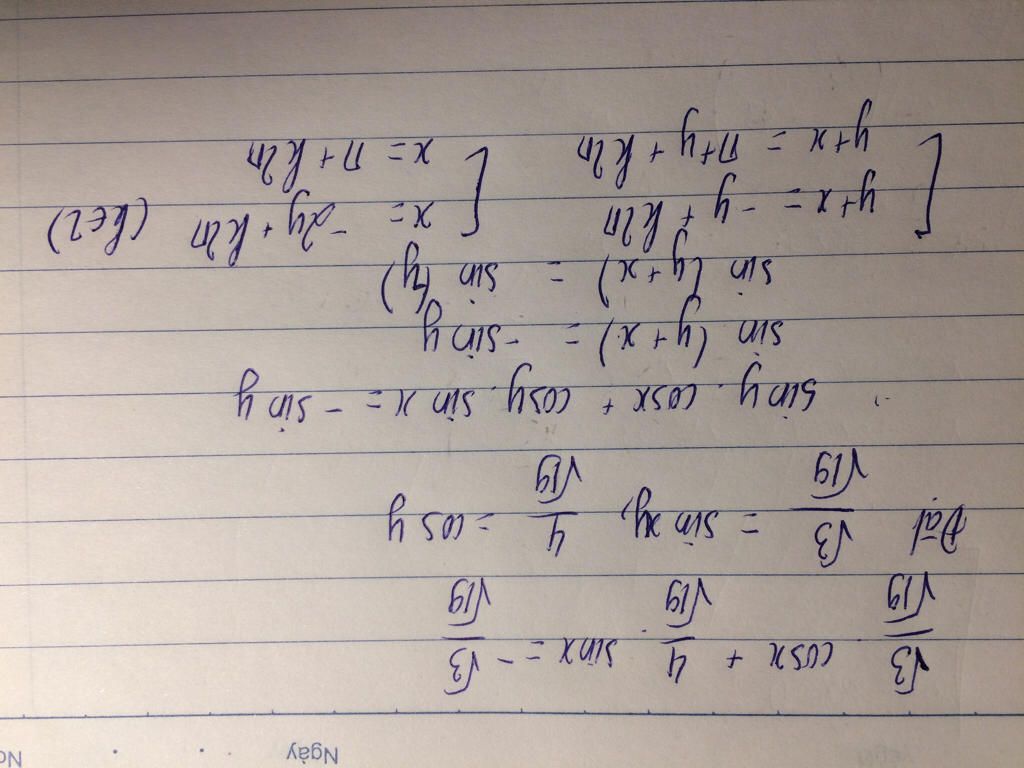 Ngày
√3/√19 cosx + 4/√19 . sinx = -√3/√19
Đặt √3/√19 = sin y, 4/√19 = cos y
sin y. cosx + cosy. sin x = - sin y
sin (y+x) = - sin y
sin (y+x) = sin (-y)
[ y+x = -y + k2π [ x = -2y + k2π (k∈Z)
y+x = π+y + k2π x = π + k2π